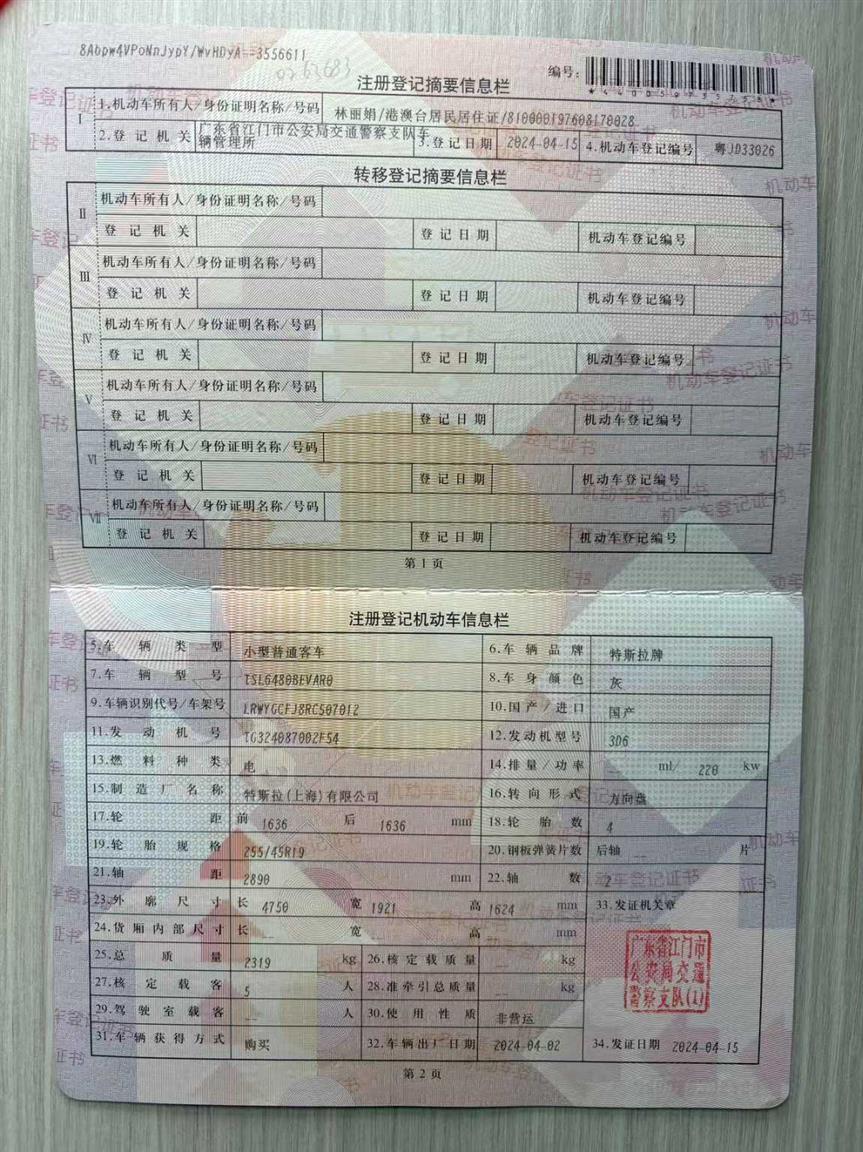 8Abpw4VPoNnJypY/WvHDyA==3556611
0263683
编号:
注册登记摘要信息栏
I 1.机动车所有人/身份证明名称/号码 林丽娟/港澳台居民居住证/810000197608170028
2.登记机关 广东省江门市公安局交通警察支队车辆管理所 3.登记日期 2024-04-15 4.机动车登记编号 粤JD33026
转移登记摘要信息栏
II 机动车所有人/身份证明名称/号码
登记机关 登记日期 机动车登记编号
III 机动车所有人/身份证明名称/号码
登记机关 登记日期 机动车登记编号
IV 机动车所有人/身份证明名称/号码
登记机关 登记日期 机动车登记编号
V 机动车所有人/身份证明名称/号码
登记机关 登记日期 机动车登记编号
VI 机动车所有人/身份证明名称/号码
登记机关 登记日期 机动车登记编号
VII 机动车所有人/身份证明名称/号码
登记机关 登记日期 机动车登记编号
第1页
注册登记机动车信息栏
5.车辆类型 小型普通客车 6.车辆品牌 特斯拉牌
7.车辆型号 TSL6480BEVAR0 8.车身颜色 灰
9.车辆识别代号/车架号 LRWYGCFJ8RC507012 10.国产/进口 国产
11.发动机号 TG324087002F54 12.发动机型号 3D6
13.燃料种类 电 14.排量/功率 ml/ 220 kw
15.制造厂名称 特斯拉(上海)有限公司 16.转向形式 方向盘
17.轮距 前 1636 后 1636 mm 18.轮胎数 4
19.轮胎规格 255/45R19 20.钢板弹簧片数 后轴 -- 片
21.轴距 2890 mm 22.轴数 2
23.外廓尺寸 长 4750 宽 1921 高 1624 mm 33.发证机关章
24.货厢内部尺寸 长 -- 宽 高 mm
25.总质量 2319 kg 26.核定载质量 -- kg
27.核定载客 5 人 28.准牵引总质量 -- kg
广东省江门市
公安局交通
警察支队(1)
29.驾驶室载客 -- 人 30.使用性质 非营运
31.车辆获得方式 购买 32.车辆出厂日期 2024-04-02 34.发证日期 2024-04-15
第2页